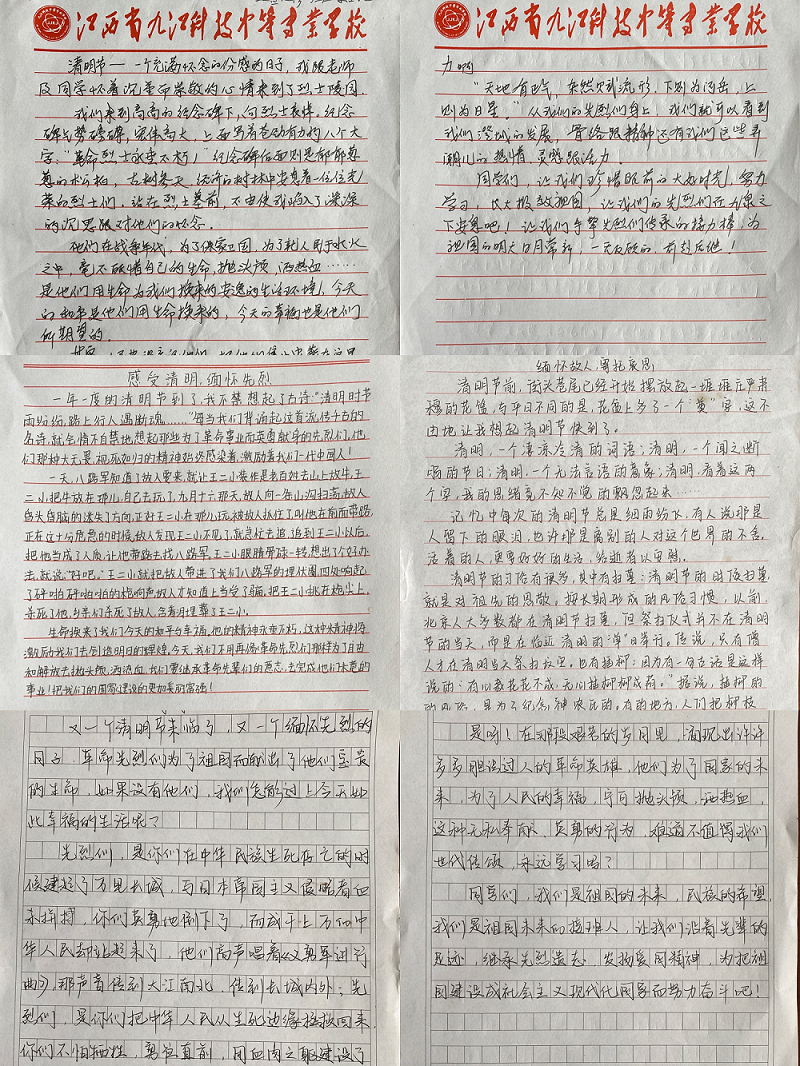 江西省九江科技中等专业学校
清明节——一个充满怀念的份感的日子，我跟老师
及同学怀着沉重而崇敬的心情来到了烈士陵园。
我们来到高高的纪念碑下，向烈士哀悼。纪念
碑气势磅礴，宏伟高大，上面写着苍劲有力的八个大
字："革命烈士永垂不朽！"纪念碑后面则是郁郁葱
葱的松柏，古树参天，经济的树林中安息着一位位光
荣的烈士们，站在烈士墓前，不由使我陷入了深深
的沉思跟对他们的怀念。
他们在战争年代，为了保家卫国，为了救人民于水火
之中，毫不顾惜自己的生命，抛头颅，洒热血……
是他们用生命为我们换来的安逸的生活环境，今天
的和平是他们用生命换来的，今天的幸福也是他们
所期望的。
江西省九江科技中等专业学校
力啊
"天地有正气，杂然赋流形，下则为河岳，上
则为日星"从我们的先烈们身上，我们就可以看到
我们 的发展，骨络跟精神还有我们这些弄
潮儿的热情，灵感跟活力。
同学们，让我们珍惜眼前的大好时光，努力
学习，以大报效祖国，让我们的先烈们在九泉之
下安息吧！让我们手擎先烈们传承的接力棒，为
祖国的明天日月常新，一天又欣的，前赴后继！
感受清明，缅怀先烈
一年一度的清明节到了，我不禁想起了古诗："清明时节
雨纷纷，路上行人遇断魂……"每当我们背诵起这首流传千古的
名诗，就会情不自禁地想起那些为了革命事业而英勇献身的先烈们，他
们那种大无畏，视死如归的精神始终感染着，激励着我们一代中国人！
一天，八路军知道了敌人要来，就让王二小装作是老百姓去山上放牛，王
二小把牛放在那儿，自己去玩了，九月十六那天，敌人向一条山沟扫荡，敌人
昏头昏脑的迷失了方向，正好王二小在那儿玩，被敌人抓住了，叫他在前面带路，
正在这十分危急的时候，敌人发现王二小不见了，就急忙去追，追到王二小以后，
把他当成了人质，让他带路去找八路军，王二小眼睛骨碌一转，想出了个好办
法，就说："好吧，"王二小就把敌人带进了我们八路军的埋伏圈，四处响起
了砰啪砰啪啪的枪响声，敌人才知道上当受了骗，把王二小挑在枪尖上，
杀死了他，乡亲们杀死了敌人，含着泪埋葬了王二小。
生命换来了我们今天的和平与幸福，他的精神永垂不朽，这种精神将
激励我们去创造明日的辉煌，今天，我们不用再像革命先烈们那样为了自由
和解放去抛头颅，洒热血，我们要继承革命先辈们的意志，去完成他们未竟的
事业！把我们的国家建设的更加美丽富强！
缅怀故人，寄托哀思
清明节前，街头巷尾已经开始摆放起一堆堆庄严肃
穆的花篮，与平日不同的是，花篮上多了一个"奠"字，这不
由地让我想起清明节快到了。
清明，一个凄凉冷清的词语；清明，一个闻之断
肠的节日；清明，一个无法言语的意象；清明，看着这两
个字，我的思绪竟不知不觉的飘忽起来……
记忆中每次的清明节总是细雨纷飞，有人说那是
人留下的眼泪，也许那是离别的人对这个世界的不舍。
活着的人，更要好好的生活，给逝者以安慰。
清明节的习俗有很多，其中有扫墓：清明节的时候扫墓
就是对祖先的思敬，按长期形成的风俗习惯，以前，
北京人大多数都在清明节扫墓，但祭扫仪式并不在清明
节的当天，而是在临近清明的"单"日举行。传说，只有僧
人才在清明当天祭扫坟茔。也有插柳：因为有一句古话是这样
说的："有心栽花花不成，无心插柳柳成荫。"据说，插柳的
的风俗，是为了纪念"神农氏的。有的地方，人们把柳枝
又一个清明节"来"临了，又一个缅怀先烈的
日子，革命先烈们为了祖国而献出了他们宝贵
的生命，如果没有他们，我们怎能过上今天如
此幸福的生活呢？
先烈们，是你们在中华民族生死存亡的时
候建起了万里长城，与日本军国主义侵略者血
来拼搏，你们英勇地倒下了，而成千上万的中
华人民却站起来了，他们高声唱着《义勇军进行
曲》，那声音传到大江南北，传到长城内外；先
烈们，是你们把中华人民从生死边缘拯救回来，
你们不怕牺牲，勇往直前，用血肉之躯建设了
是呀！在那段艰苦的岁月里，涌现出许许
多多胆识过人的革命英雄，他们为了国家的未
来，为了人民的幸福，宁可抛头颅，洒热血，
这种无私奉献，英勇的行为，难道不值得我们
世代传颂，永远学习吗？
同学们，我们是祖国的未来，民族的希望，
我们是祖国未来的接班人，让我们沿着先辈的
足迹，继承先烈遗志，发扬爱国精神，为把祖
国建设成社会主义现代化国家而努力奋斗吧！